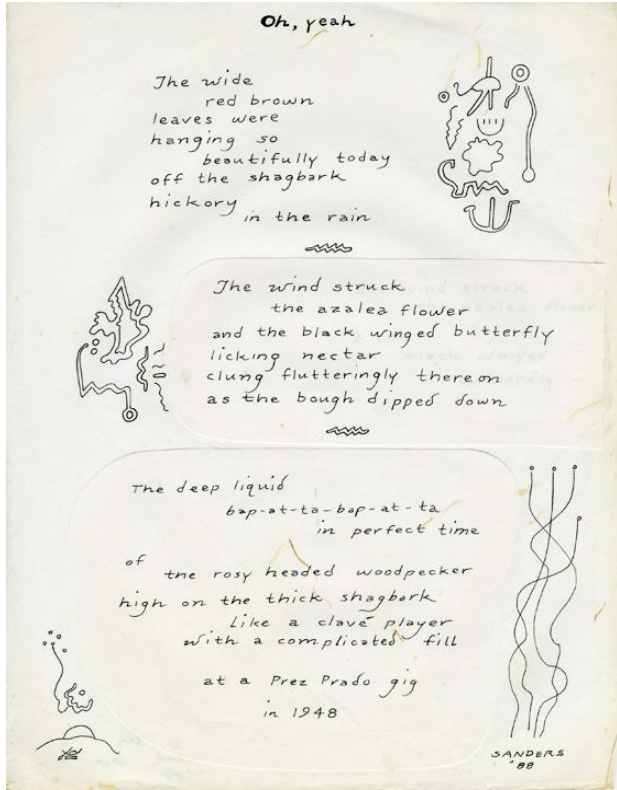 Oh, yeah
The wide
red brown
leaves were
hanging so
beautifully today
off the shagbark
hickory
in the rain
The wind struck
the azalea flower
and the black winged butterfly
licking nectar
clung flutteringly thereon
as the bough dipped down
The deep liquid
bap-at-ta-bap-at-ta
in perfect time
of
the rosy headed woodpecker
high on the thick shagbark
Like a clavé player
with a complicated fill
at a Prez Prado gig
in 1948
SANDERS
'88